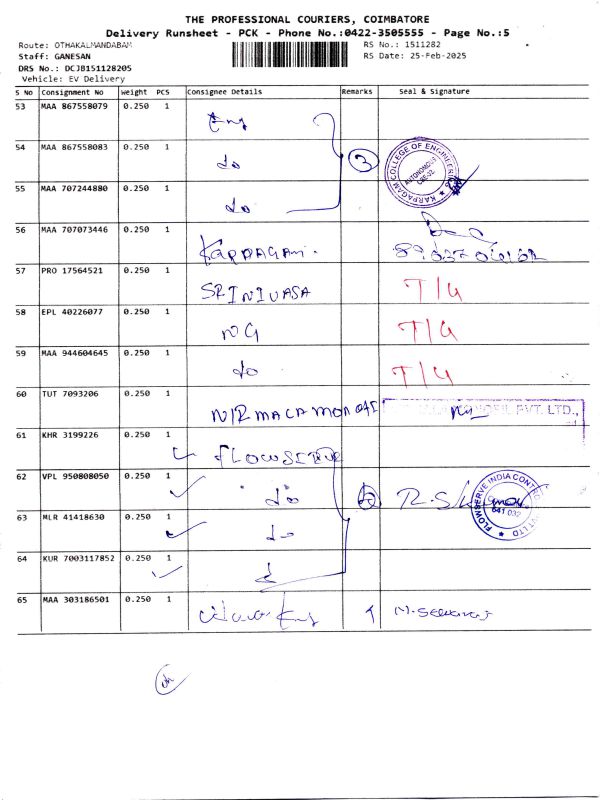 THE PROFESSIONAL COURIERS, COIMBATORE
Delivery Runsheet - PCK - Phone No.:0422-3505555 - Page No.:5
Route: OTHAKALMANDABAM RS No.: 1511282
Staff: GANESAN RS Date: 25-Feb-2025
DRS No.: DCJB151128205
Vehicle: EV Delivery
S No Consignment No Weight PCS Consignee Details Remarks Seal & Signature
53 MAA 867558079 0.250 1 Eng
54 MAA 867558083 0.250 1 do 3 KARPAGAM COLLEGE OF ENGINEERING AUTONOMOUS
55 MAA 707244880 0.250 1 do
56 MAA 707073446 0.250 1 KARPAGAM.
57 PRO 17564521 0.250 1 SRINIVASA T/G
58 EPL 40226077 0.250 1 NG T/G
59 MAA 944604645 0.250 1 do T/G
60 TUT 7093206 0.250 1 PVT. LTD.,
61 KHR 3199226 0.250 1 FLOWSERVE
62 VPL 950808050 0.250 1 do FLOWSERVE INDIA CONTROLS PVT LTD 641 032
63 MLR 41418630 0.250 1 do
64 KUR 7003117852 0.250 1
65 MAA 303186501 0.250 1